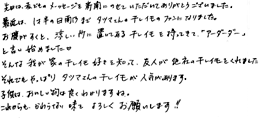 先日は、私どものメッセージを新聞にのせていただいてありがとうございました。
最近は、1才半の日南子までタツマさんのチレイモのファンになりました。
お腹がすくと、涼しい所に置いてあるチレイモを持ってきて、"アーダーダー"
と言い始めました
そんな我が家のチレイモ好きを知って、友人が他社のチレイモをくれました
それでもやっぱりタツマさんのチレイモが人気があります。
子供は、おいしい物は良くわかりますね。
これからもかわらない味をよろしくお願いします!!